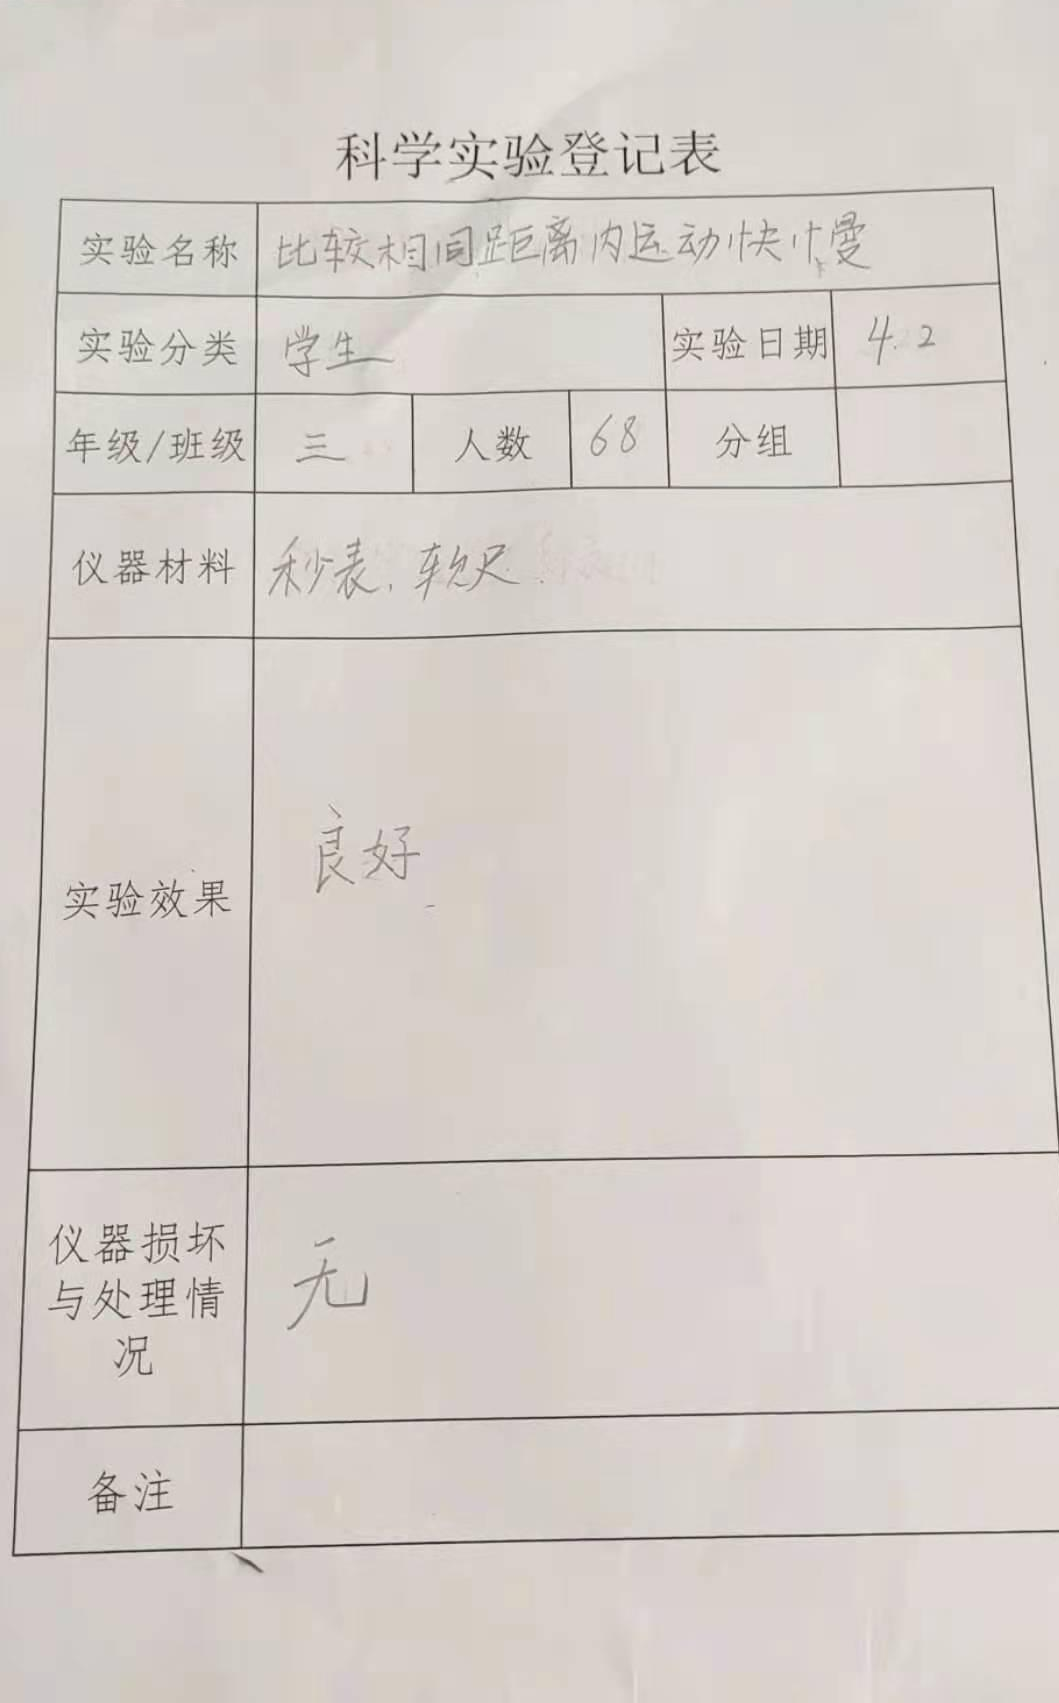 科学实验登记表
实验名称 比较相同距离内运动快慢
实验分类 学生 实验日期 4.2
年级/班级 三 人数 68 分组
仪器材料 秒表、软尺
实验效果 良好
仪器损坏
与处理情
况
无
备注